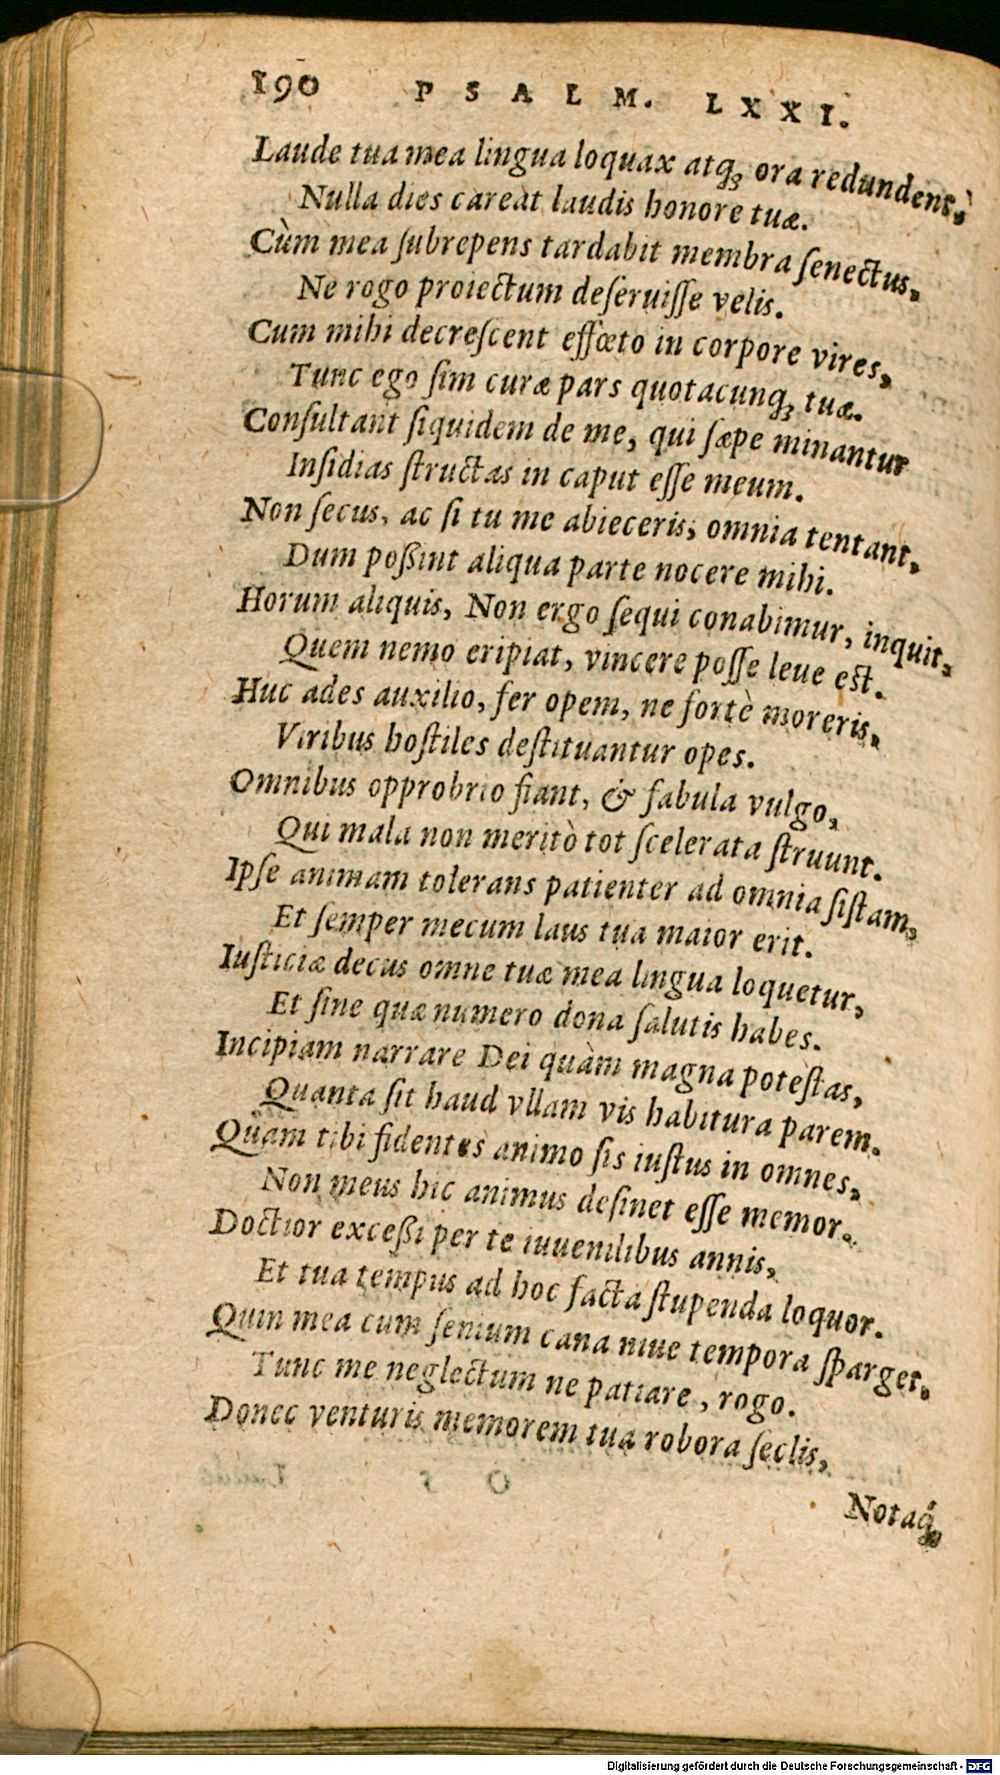 190 PSALM. LXXI.
Laude tua mea lingua loquax atq́ꝫ ora redundent,
Nulla dies careat laudis honore tuæ.
Cùm mea ſubrepens tardabit membra ſenectus,
Ne rogo proiectum deſeruiſſe velis.
Cum mihi decreſcent effœto in corpore vires,
Tunc ego ſim curæ pars quotacunqꝫ tuæ.
Conſultant ſiquidem de me, qui ſæpe minantur
Inſidias ſtructas in caput eſſe meum.
Non ſecus, ac ſi tu me abieceris, omnia tentant,
Dum poßint aliqua parte nocere mihi.
Horum aliquis, Non ergo ſequi conabimur, inquit,
Quem nemo eripiat, vincere poſſe leue eſt.
Huc ades auxilio, fer opem, ne fortè moreris,
Viribus hoſtiles deſtituantur opes.
Omnibus opprobrio fiant, & fabula vulgo,
Qui mala non meritò tot ſcelerata ſtruunt.
Ipſe animam tolerans patienter ad omnia ſiſtam,
Et ſemper mecum laus tua maior erit.
Iuſticiæ decus omne tuæ mea lingua loquetur,
Et ſine quæ numero dona ſalutis habes.
Incipiam narrare Dei quàm magna poteſtas,
Quanta ſit haud vllam vis habitura parem.
Quàm tibi fidentes animo ſis iuſtus in omnes,
Non meus hic animus deſinet eſſe memor.
Doctior exceßi per te iuuenilibus annis,
Et tua tempus ad hoc facta ſtupenda loquor.
Quin mea cum ſenium cana niue tempora ſparget,
Tunc me neglectum ne patiare, rogo.
Donec venturis memorem tua robora ſeclis,
Notaq́ꝫ
Digitalisierung gefördert durch die Deutsche Forschungsgemeinschaft - DFG